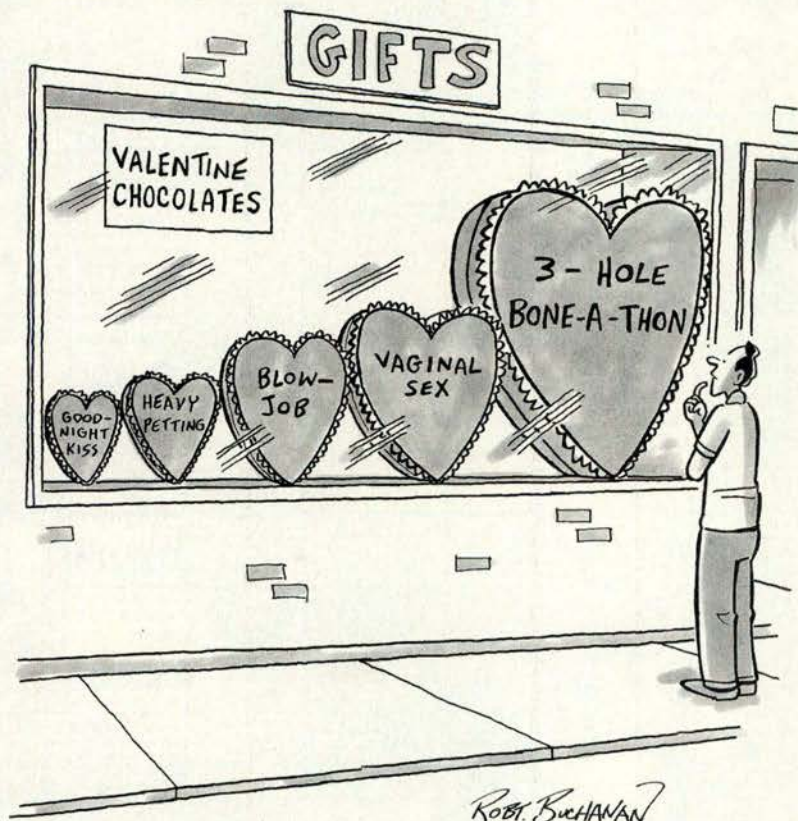 GIFTS
VALENTINE
CHOCOLATES
GOOD-
NIGHT
KISS
HEAVY
PETTING
BLOW-
JOB
VAGINAL
SEX
3-HOLE
BONE-A-THON
ROBT. BUCHANAN